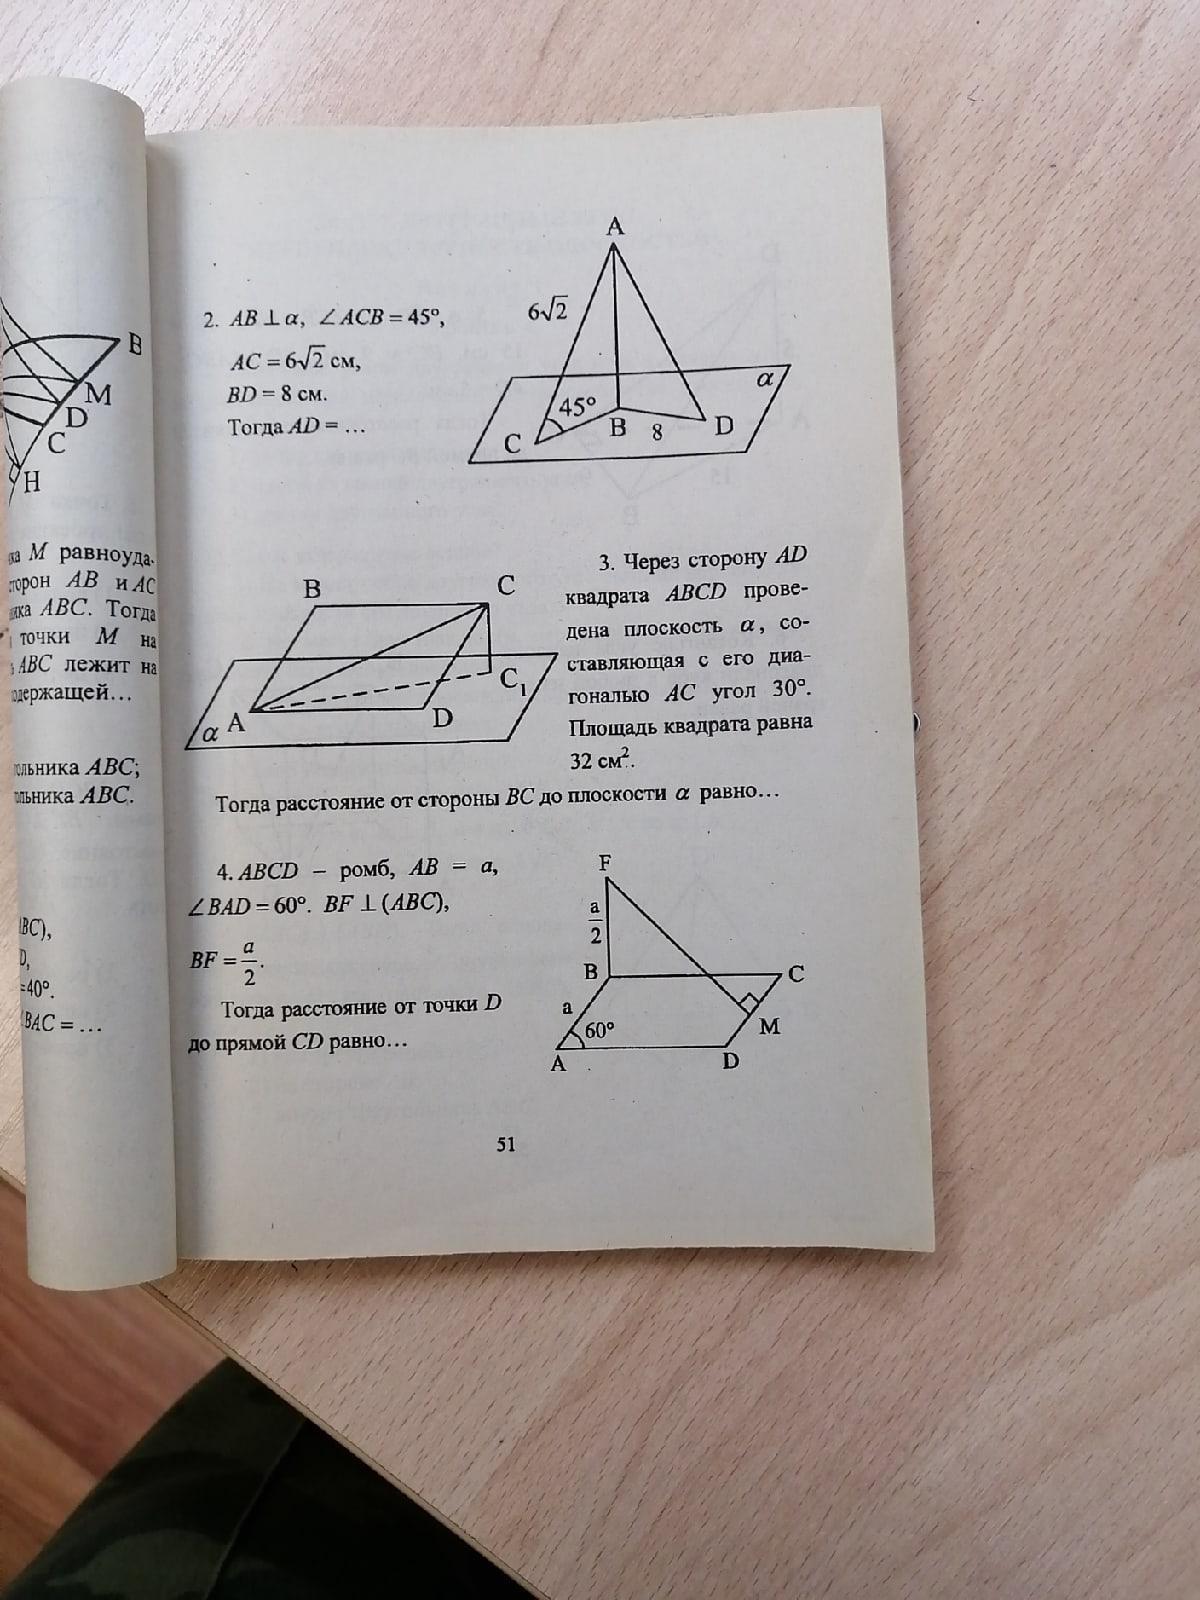 B
M
D
C
H
M равноуда-
сторон AB и AC
ABC. Тогда
точки M на
ABC лежит на
содержащей...
ABC;
ABC.
=40°.
BAC = ...
2. AB ⊥ α, ∠ACB = 45°,
AC = 6√2 см,
BD = 8 см.
Тогда AD = ...
A
6√2
α
45°
C
B
8
D
3. Через сторону AD
квадрата ABCD прове-
дена плоскость α, со-
ставляющая с его диа-
гональю AC угол 30°.
Площадь квадрата равна
32 см².
Тогда расстояние от стороны BC до плоскости α равно...
B
C
C₁
α
A
D
4. ABCD – ромб, AB = a,
∠BAD = 60°. BF ⊥ (ABC),
BF = a/2.
Тогда расстояние от точки D
до прямой CD равно...
F
a/2
B
C
a
60°
M
A
D
51